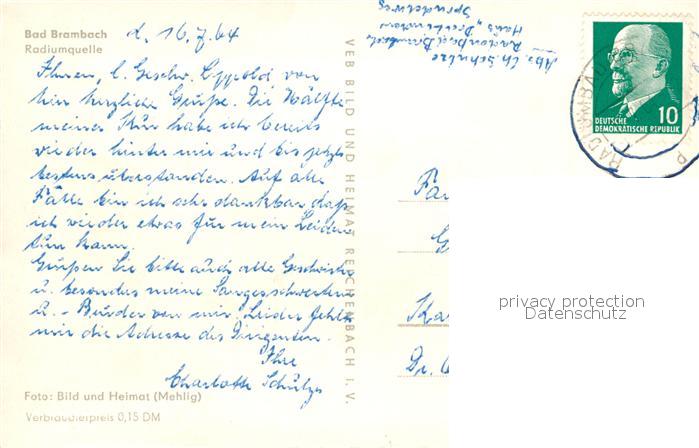 Bad Brambach
Radiumquelle
d. 16.7.64
Ihnen, l. Geschw. Lippold von
hier herzliche Grüße. Die Hälfte
meiner Kur habe ich bereits
wieder hinter mir und bis jetzt
bestens überstanden. Auf alle
Fälle bin ich sehr dankbar, daß
ich wieder etwas für mein Leiden
tun kann.
Grüßen Sie bitte auch alle Geschwister
u. besonders meine Sangesschwestern
u. - Brüder von mir. Leider fehlt
mir die Adresse des Dirigenten.
Ihre
Charlotte Schulze
Foto: Bild und Heimat (Mehlig)
Verbraucherpreis 0,15 DM
VEB BILD UND HEIMAT REICHENBACH I. V.
Abs. Ch. Schulze
Radonbad Brambach
Haus
Sprudelweg
10
DEUTSCHE
DEMOKRATISCHE REPUBLIK
Fa
G
Ka
Dr.
privacy protection
Datenschutz